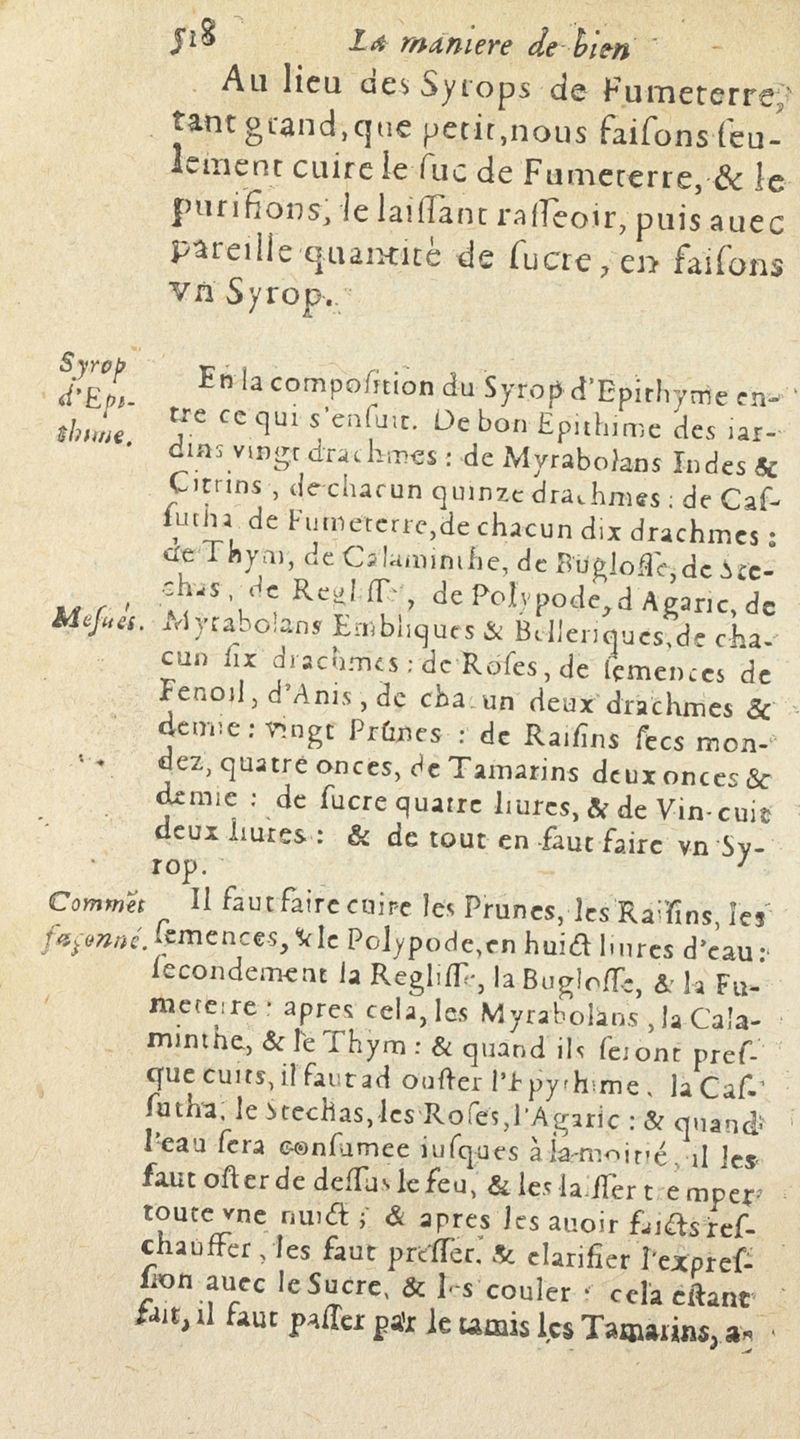 518 La maniere de bien
Au lieu des Syrops de Fumeterre,
tant grand, que petit, nous faisons seu-
lement cuire le suc de Fumeterre, & le
purifions, le laissant rasseoir, puis auec
pareille quantité de sucre, en faisons
vn Syrop.
Syrop
d'Epi-
thime.
En la composition du Syrop d'Epithyme en-
tre ce qui s'ensuit. De bon Epithime des iar-
dins vingt drachmes : de Myrabolans Indes &
Citrins, de chacun quinze drachmes : de Cas-
sutha de Fumeterre, de chacun dix drachmes :
de Thym, de Calaminthe, de Buglosse, de Ste-
chas, de Reglisse, de Polypode, d'Agaric, de
Mesués.
Myrabolans Embliques & Belleriques, de cha-
cun six drachmes : de Roses, de semences de
Fenoil, d'Anis, de chacun deux drachmes &
demie : vingt Prûnes : de Raisins secs mon-
dez, quatre onces, de Tamarins deux onces &
demie : de sucre quatre liures, & de Vin-cuit
deux liures : & de tout en faut faire vn Sy-
rop.
Commẽt
façonné.
Il faut faire cuire les Prunes, les Raisins, les
semences, & le Polypode, en huict liures d'eau :
secondement la Reglisse, la Buglosse, & la Fu-
meterre : apres cela, les Myrabolans, la Cala-
minthe, & le Thym : & quand ils seront pres-
que cuits, il faut ad ouster l'Epythime, la Cas-
sutha, le Stechas, les Roses, l'Agaric : & quand
l'eau sera consumee iusques à la moitié, il les
faut oster de dessus le feu, & les laisser tremper
toute vne nuict ; & apres les auoir faicts res-
chauffer, les faut presser, & clarifier l'expres-
sion auec le Sucre, & les couler : cela estant
fait, il faut passer par le tamis les Tamarins, au